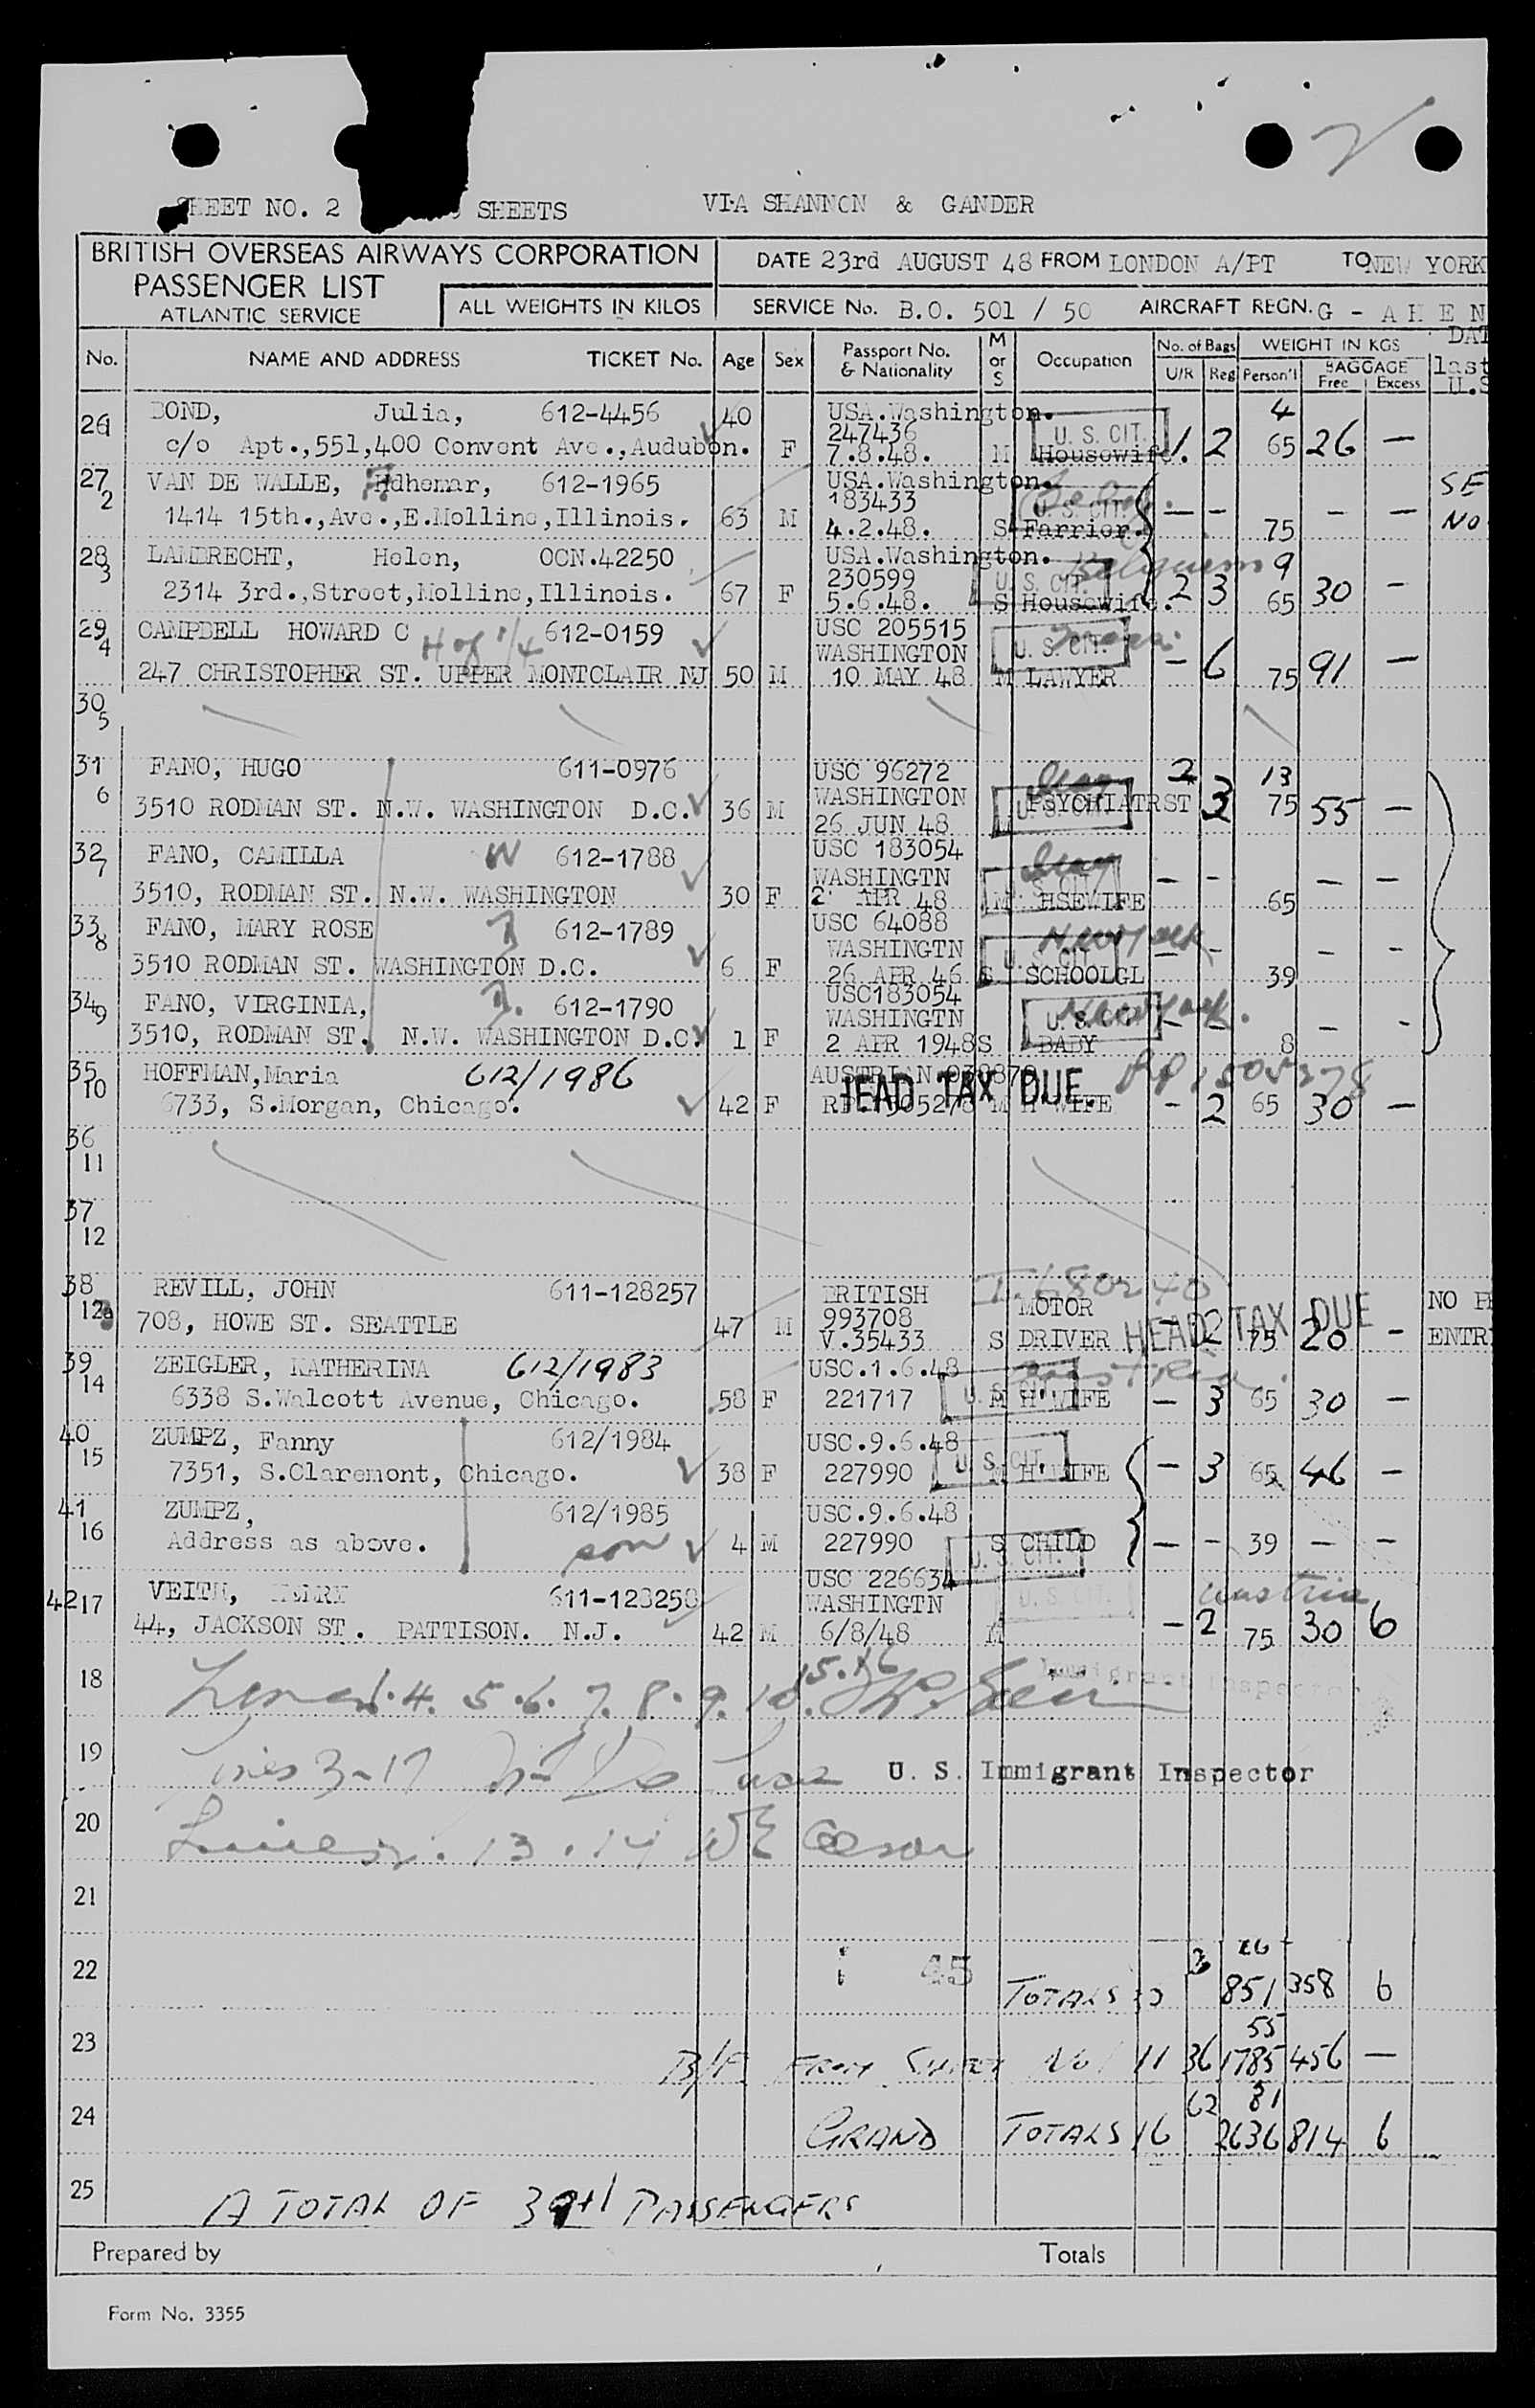 SHEET NO. 2 SHEETS VIA SHANNON & GANDER
BRITISH OVERSEAS AIRWAYS CORPORATION
PASSENGER LIST
ATLANTIC SERVICE
ALL WEIGHTS IN KILOS
DATE 23rd AUGUST 48 FROM LONDON A/PT TO NEW YORK
SERVICE No. B.O. 501 / 50 AIRCRAFT REGN. G - A H E N
No. NAME AND ADDRESS TICKET No. Age Sex Passport No. & Nationality M or S Occupation No. of Bags U/R Reg WEIGHT IN KGS Person'l BAGGAGE Free Excess
last
U.S
26 BOND, Julia, 612-4456 40 USA.Washington. 4
c/o Apt.,551,400 Convent Ave.,Audubon. F 247436 7.8.48. M Housewife. U. S. CIT. 1 2 65 26 —
27 2 VAN DE WALLE, Edhemar, 612-1965 USA.Washington. SE
1414 15th.,Ave.,E.Molline,Illinois. 63 M 183433 4.2.48. S Farrier. U. S. CIT. — - 75 — — NO
28 3 LAMBRECHT, Helen, OCN.42250 USA.Washington. 9
2314 3rd.,Street,Molline,Illinois. 67 F 230599 5.6.48. S Housewife. U. S. CIT. 2 3 65 30 —
29 4 CAMPBELL HOWARD C 612-0159 USC 205515 U. S. CIT.
247 CHRISTOPHER ST. UPPER MONTCLAIR NJ 50 M WASHINGTON 10 MAY 48 M LAWYER — 6 75 91 —
30 5
31 FANO, HUGO 611-0976 USC 96272 2 13
6 3510 RODMAN ST. N.W. WASHINGTON D.C. 36 M WASHINGTON 26 JUN 48 PSYCHIATRST 3 75 55 —
32 7 FANO, CAMILLA W 612-1788 USC 183054
3510, RODMAN ST. N.W. WASHINGTON 30 F WASHINGTN 2 APR 48 M HSEWIFE — - 65 — —
33 8 FANO, MARY ROSE 612-1789 USC 64088 New York
3510 RODMAN ST. WASHINGTON D.C. 6 F WASHINGTN 26 APR 46 S SCHOOLGL — - 39 — —
34 9 FANO, VIRGINIA, 612-1790 USC183054 New York.
3510, RODMAN ST. N.W. WASHINGTON D.C. 1 F WASHINGTN 2 APR 1948 S BABY — - 8 — -
35 10 HOFFMAN,Maria 612/1986 HEAD TAX DUE.
6733, S.Morgan, Chicago. 42 F M H WIFE — 2 65 30 —
36
11
37
12
38 REVILL, JOHN 611-128257 BRITISH MOTOR NO
708, HOWE ST. SEATTLE 47 M 993708 V.35433 S DRIVER HEAD TAX DUE — 2 75 20 — ENTR
39 14 ZEIGLER, KATHERINA 612/1983 USC.1.6.48 Austria.
6338 S.Walcott Avenue, Chicago. 58 F 221717 M H WIFE — 3 65 30 —
40 ZUMPZ, Fanny 612/1984 USC.9.6.48 U. S. CIT.
15 7351, S.Claremont, Chicago. 38 F 227990 M H WIFE — 3 65 46 —
41 ZUMPZ, 612/1985 USC.9.6.48
16 Address as above. son 4 M 227990 S CHILD U. S. CIT. — - 39 — —
42 17 611-128258 USC 226634 U. S. CIT. Austria
44, JACKSON ST. PATTISON. N.J. 42 M WASHINGTN 6/8/48 M — 2 75 30 6
18 1.4. 5.6. 7. 8. 9. 10. 15.16 Immigrant Inspector
19 Lines 3-17 U. S. Immigrant Inspector
20 Lines 13.14
21
22 45 TOTALS 26 851 358 6
23 B/F FROM SHEET No 1 11 36 55 1785 456 —
24 GRAND TOTALS 16 62 81 2636 814 6
25 A TOTAL OF 39+1 PASSENGERS
Prepared by Totals
Form No. 3355